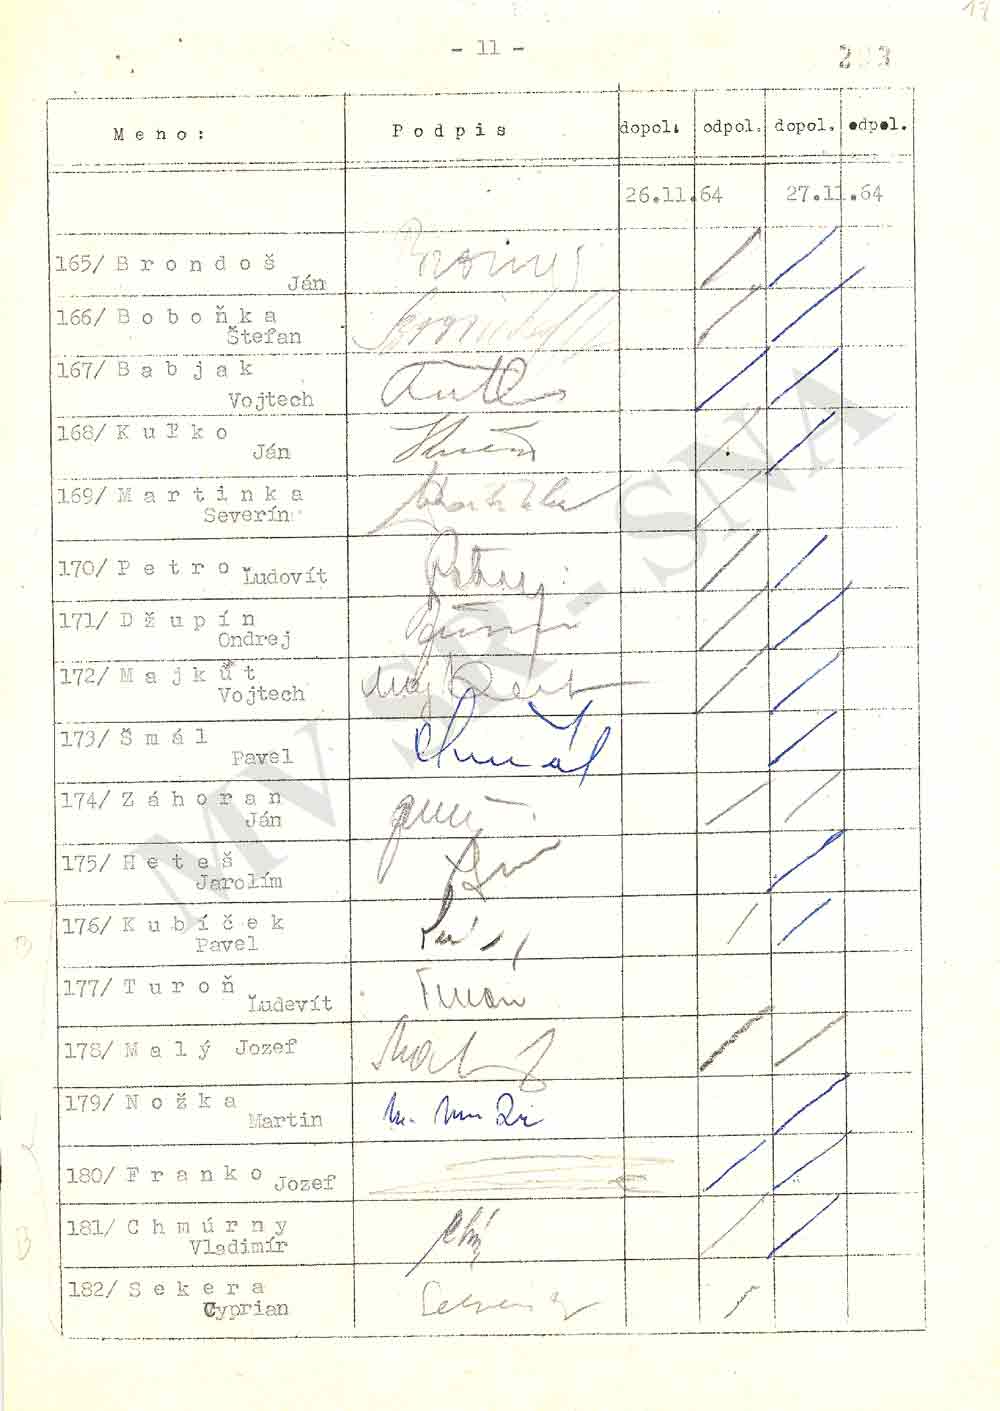 17
- 11 -
M e n o : P o d p i s dopol. odpol. dopol. odpol.
26.11.64 27.11.64
165/ B r o n d o š
Ján
166/ B o b o ň k a
Štefan
167/ B a b j a k
Vojtech
168/ K u ľ k o
Ján
169/ M a r t i n k a
Severín
170/ P e t r o Ľudovít
171/ D ž u p í n
Ondrej
172/ M a j k ú t
Vojtech
173/ Š m á l
Pavel
174/ Z á h o r a n
Ján
175/ H e t e š
Jarolím
176/ K u b í č e k
Pavel
177/ T u r o ň
Ľudevít
178/ M a l ý Jozef
179/ N o ž k a
Martin
180/ F r a n k o Jozef
181/ C h m ú r n y
Vladimír
182/ S e k e r a
Cyprian
MV SR - SNA